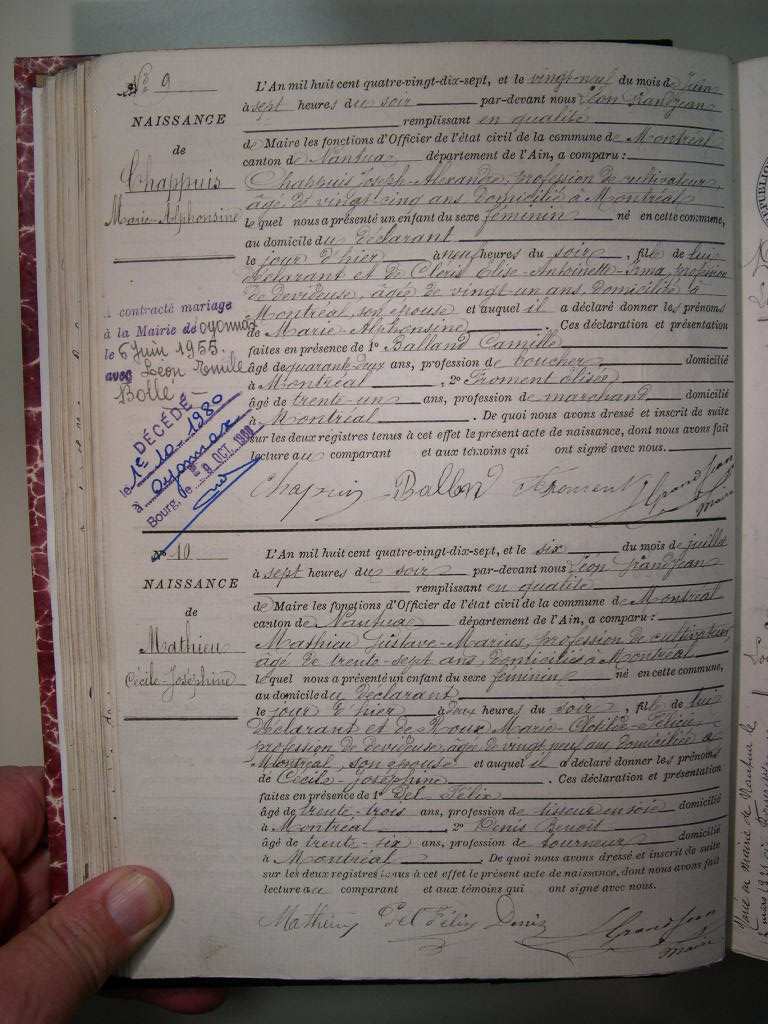 N° 9
NAISSANCE
de
Chappuis
Marie-Alphonsine
a contracté mariage
à la Mairie de Oyonnax
le 6 Juin 1955.
avec Léon Emile
Bolle
DÉCÉDÉ
le 1er 10 1980
à Oyonnax
Bourg, le 8 OCT. 1980
L'An mil huit cent quatre-vingt-dix-sept, et le vingt-neuf du mois de Juin
à sept heures du soir par-devant nous Léon Grandjean
remplissant en qualité
de Maire les fonctions d'Officier de l'état civil de la commune de Montréal
canton de Nantua, département de l'Ain, a comparu :
Chappuis Joseph-Alexandre, profession de cultivateur,
âgé de vingt-cinq ans domicilié à Montréal
lequel nous a présenté un enfant du sexe féminin né en cette commune,
au domicile du déclarant
le jour d'hier à neuf heures du soir, fille de lui
déclarant et de Cléris Elise-Antoinette- profession
de dévideuse, âgée de vingt un ans, domiciliée à
Montréal, son épouse et auquel il a déclaré donner les prénoms
de Marie Alphonsine. Ces déclaration et présentation
faites en présence de 1° Balland Camille
âgé de quarante-deux ans, profession de boucher, domicilié
à Montréal, 2° Froment Elisée
âgé de trente-un ans, profession de marchand domicilié
à Montréal. De quoi nous avons dressé et inscrit de suite
sur les deux registres tenus à cet effet le présent acte de naissance, dont nous avons fait
lecture au comparant et aux témoins qui ont signé avec nous.
Chapuis Balland Froment Grandjean
maire
N° 10
NAISSANCE
de
Mathieu
Cécile-Joséphine
L'An mil huit cent quatre-vingt-dix-sept, et le six du mois de juillet
à sept heures du soir par-devant nous Léon Grandjean
remplissant en qualité
de Maire les fonctions d'Officier de l'état civil de la commune de Montréal
canton de Nantua, département de l'Ain, a comparu :
Mathieu Gustave-Marius, profession de cultivateur,
âgé de trente-sept ans, domicilié à Montréal
lequel nous a présenté un enfant du sexe féminin né en cette commune,
au domicile du déclarant
le jour d'hier à deux heures du soir, fille de lui
déclarant et de Roux Marie Clotilde-Félicie
profession de dévideuse, âgée de vingt neuf ans domiciliée à
Montréal, son épouse et auquel il a déclaré donner les prénoms
de Cécile-Joséphine. Ces déclaration et présentation
faites en présence de 1° Pel Félix
âgé de trente-trois ans, profession de tisseur en soie domicilié
à Montréal, 2° Deniz Benoit
âgé de trente-six ans, profession de tourneur domicilié
à Montréal. De quoi nous avons dressé et inscrit de suite
sur les deux registres tenus à cet effet le présent acte de naissance, dont nous avons fait
lecture au comparant et aux témoins qui ont signé avec nous.
Mathieu Pel Félix Deniz Grandjean
maire